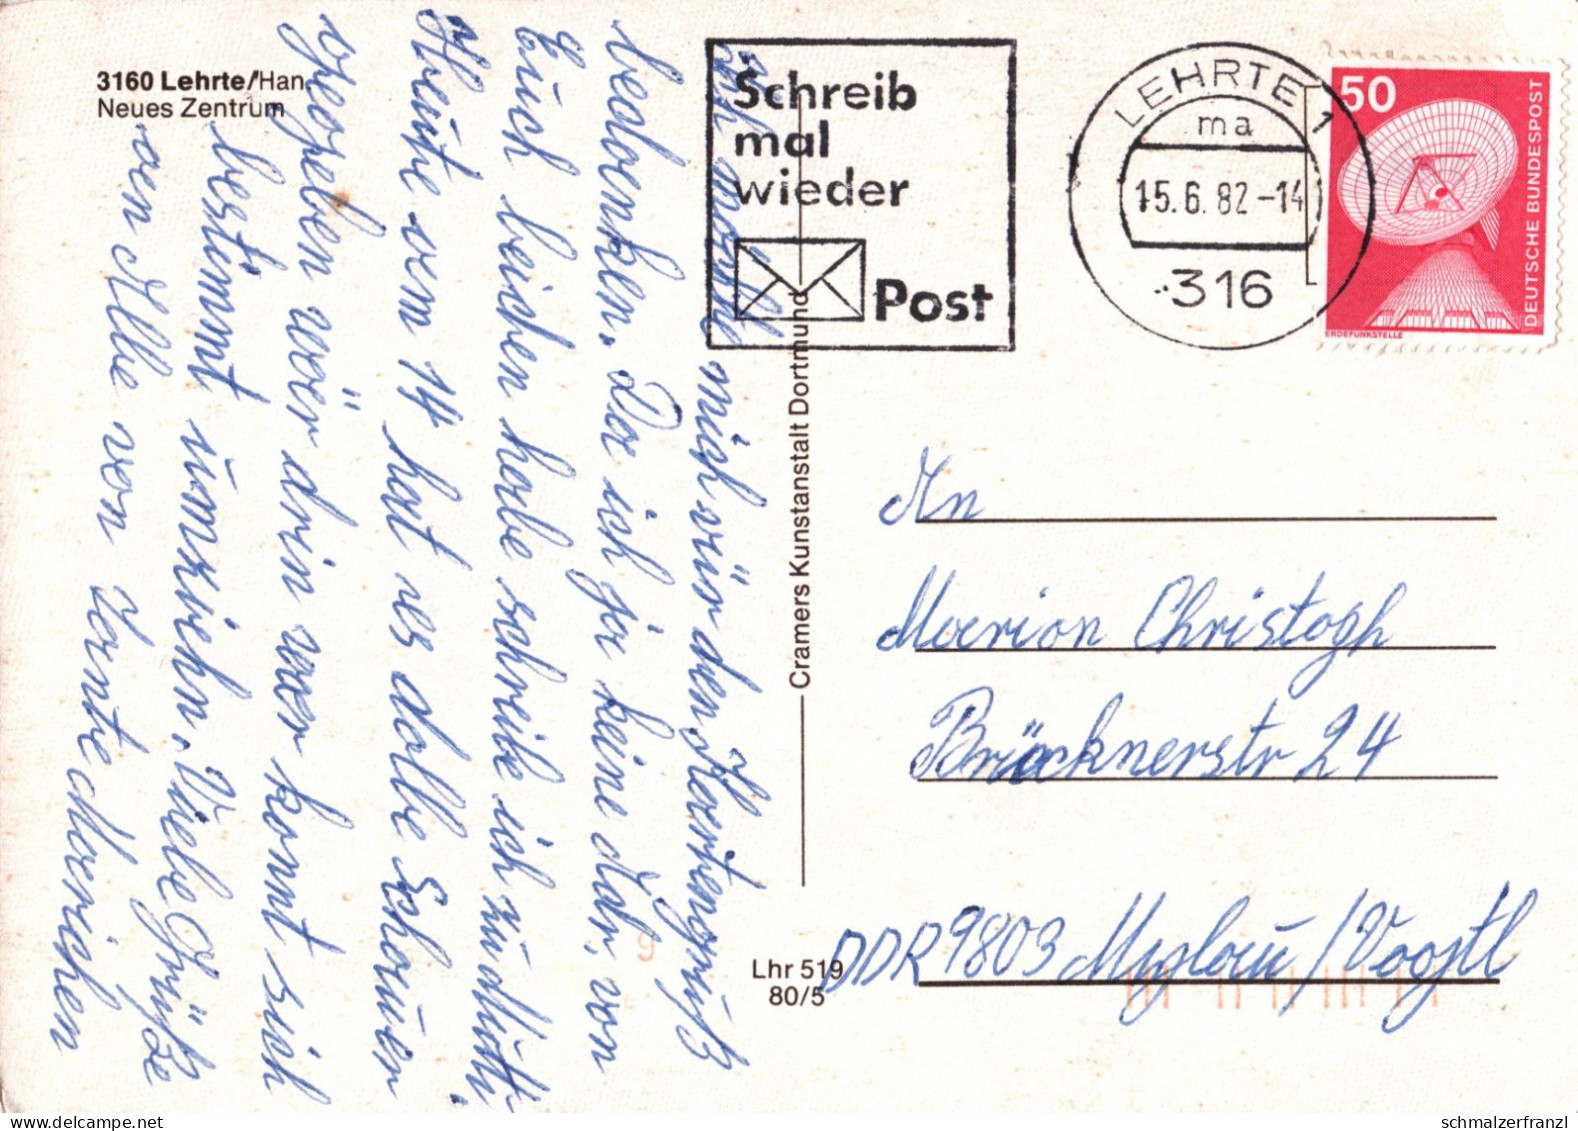 3160 Lehrte/Han.
Neues Zentrum
Schreib
mal
wieder
Post
LEHRTE 1
ma
15.6.82-14
316
50
DEUTSCHE BUNDESPOST
ERDEFUNKSTELLE
Cramers Kunstanstalt Dortmund
Lhr 519
80/5
Ich möchte mich für den Kartengruß
bedanken. Da ich ja keine Adr. von
Euch beiden habe schreibe ich zu Mutti.
Heute vem 14 hat es dolle Schauer
gegeben wär drin war konnt sich
bestimmt umziehn. Viele Grüße
an Alle von Tante Marichen
An
Marion Christoph
Brücknerstr 24
DDR 9803 Mylau / Vogtl
schmalzerfranzl
www.delcampe.net